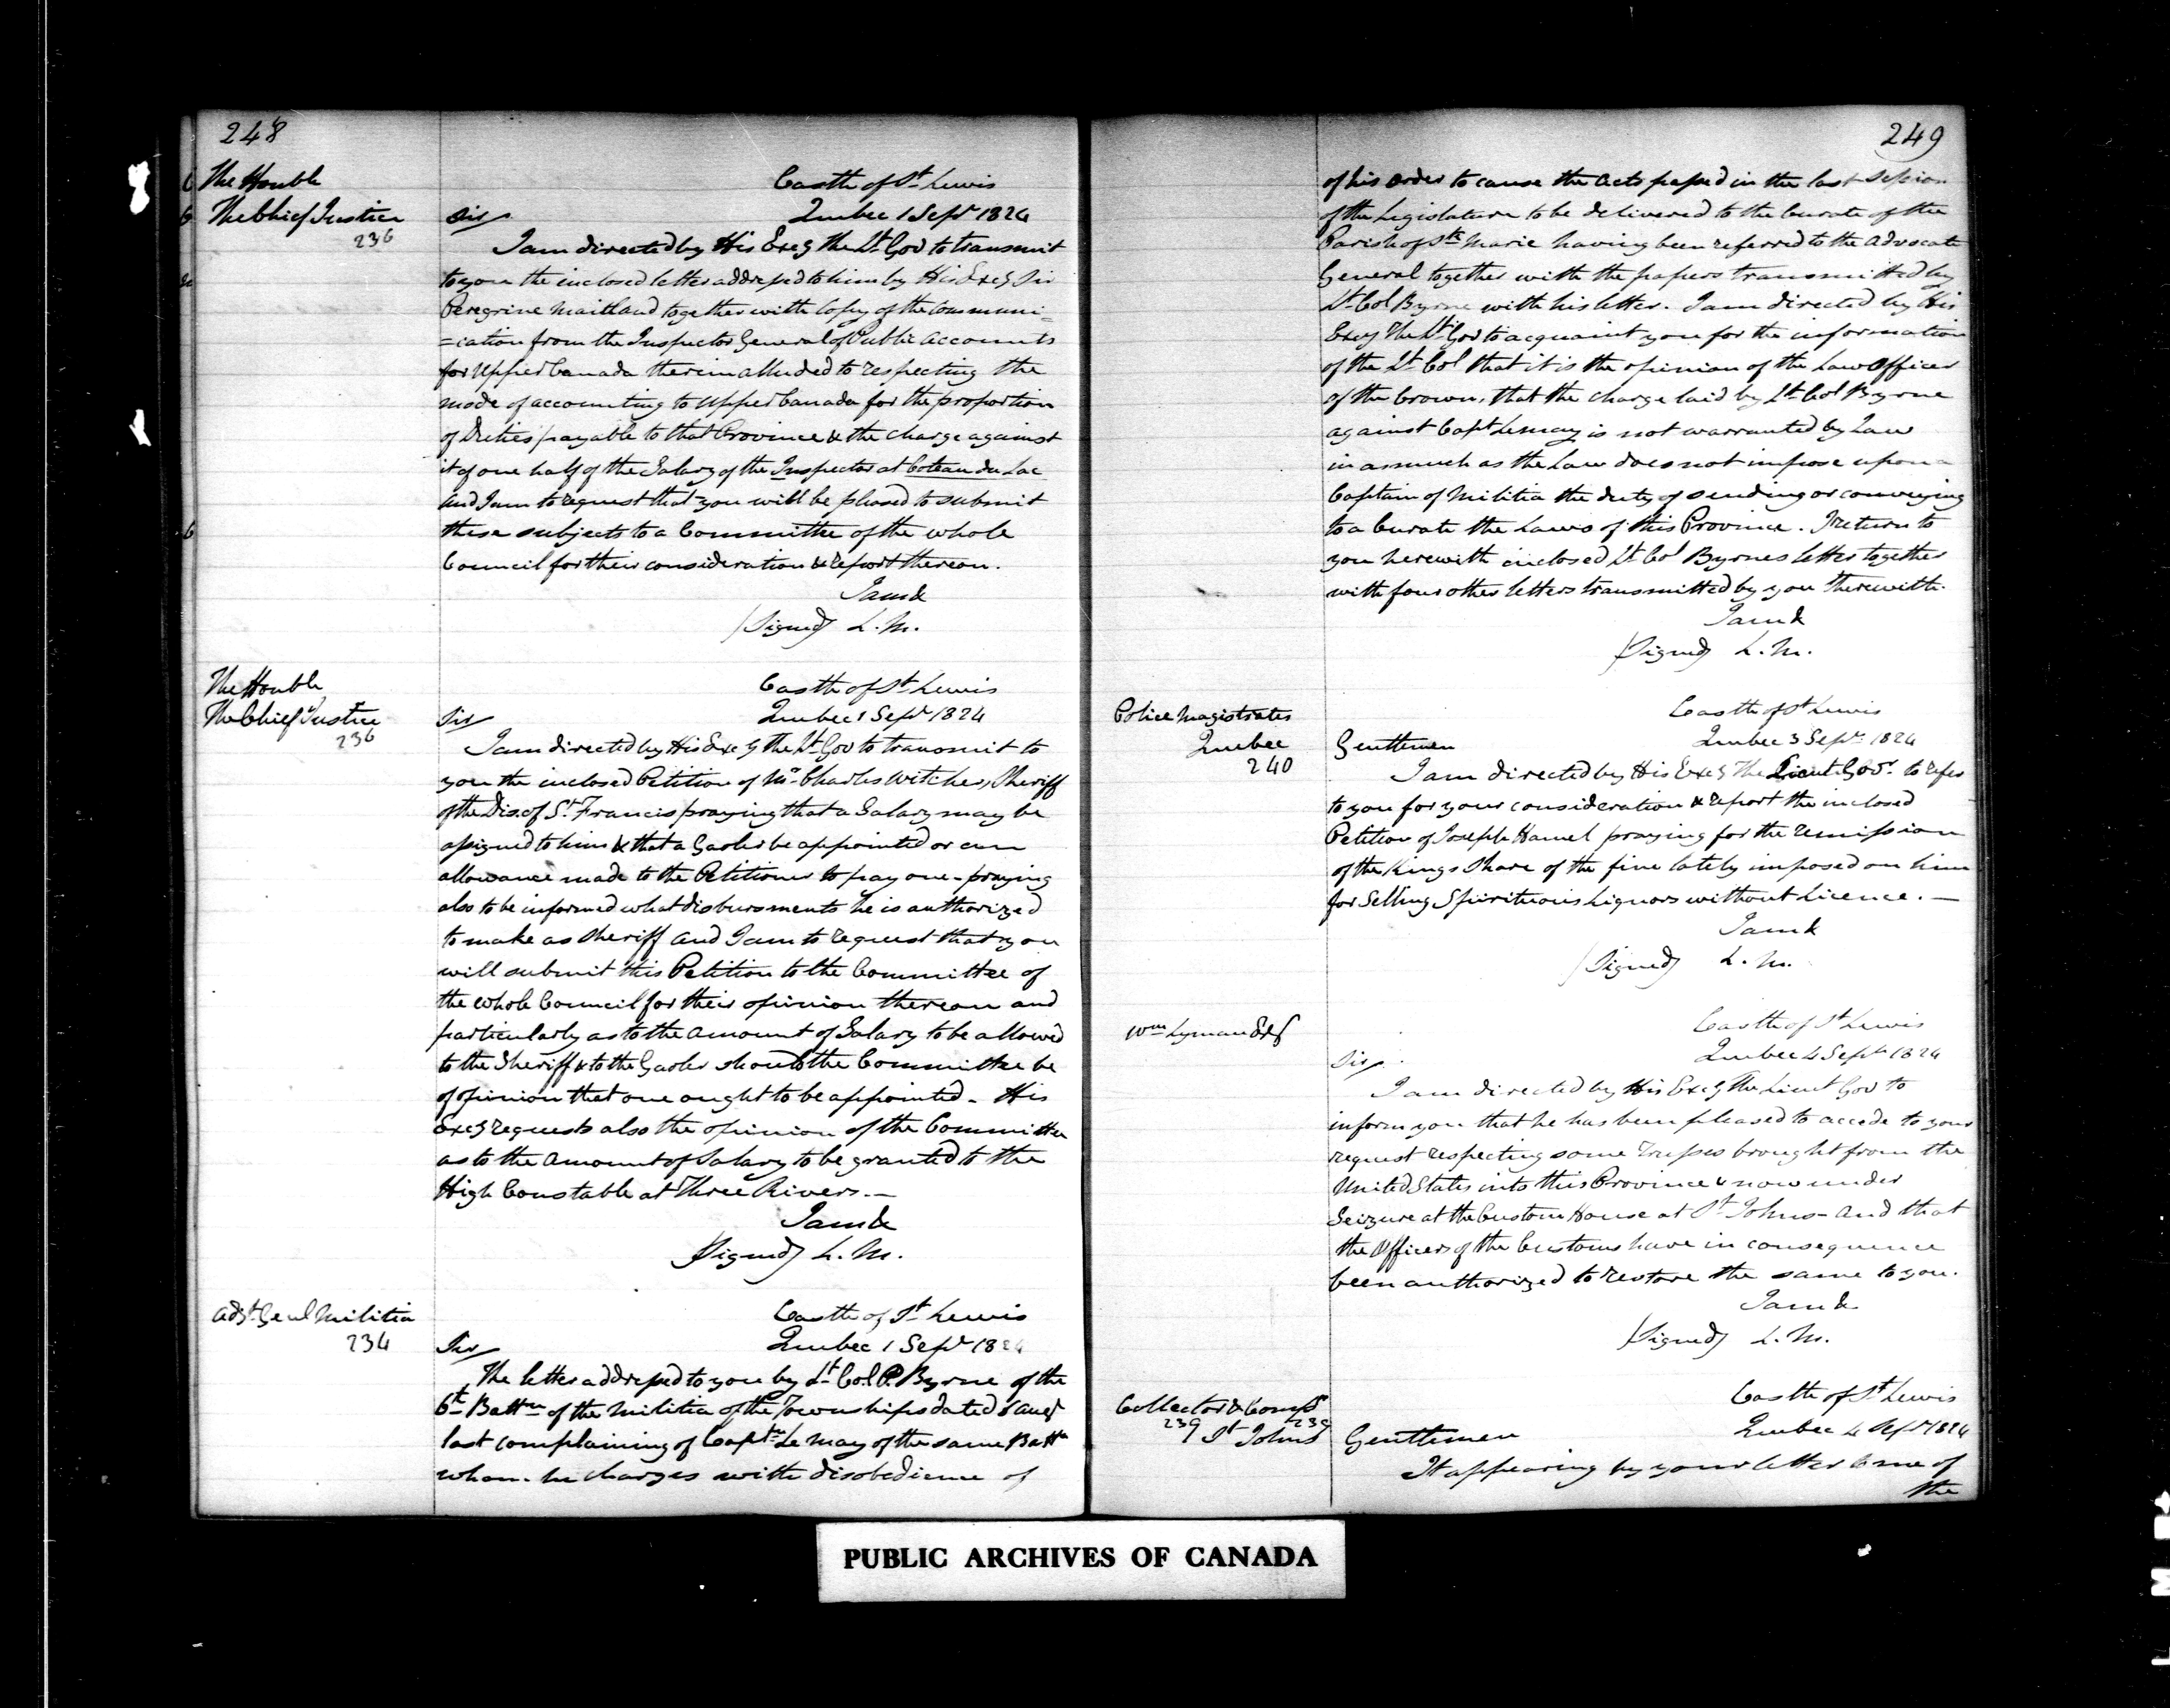 248
The Honble
The Chief Justice
236
Castle of St Lewis
Quebec 1 Sept 1824
Sir/
I am directed by His Excy the Lt Gov to transmit
to you the inclosed letter addressed to him by His Excy Sir
Peregrine Maitland together with Copy of the Communi=
=cation from the Inspector General of Public Accounts
for Upper Canada therein alluded to respecting the
mode of accounting to Upper Canada for the proportion
of Duties payable to that Province & the charge against
it of one half of the Salary of the Inspector at Coteau du Lac
and I am to request that you will be pleased to submit
these subjects to a Committee of the whole
Council for their consideration & report thereon.
I am &
/Signed/ L. M.
The Honble
The Chief Justice
236
Castle of St Lewis
Quebec 1 Sept 1824
Sir/
I am directed by His Excy the Lt Gov to transmit to
you the inclosed Petition of Mr Charles Witcher, Sheriff
of the Dis. of St Francis praying that a Salary may be
assigned to him & that a Gaoler be appointed or an
allowance made to the Petitioner to pay one - praying
also to be informed what disbursments he is authorized
to make as Sheriff and I am to request that you
will submit this Petition to the Committee of
the whole Council for their opinion thereon and
particularly as to the amount of Salary to be allowed
to the Sheriff & to the Gaoler should the Committee be
of opinion that one ought to be appointed - His
Excy requests also the opinion of the Committee
as to the amount of Salary to be granted to the
High Constable at Three Rivers. -
I am &
/Signed/ L. M.
Adjt Genl Militia
234
Castle of St Lewis
Quebec 1 Sept 1824
Sir/
The letter addressed to you by Lt Col. P. Byrne of the
6th Battn of the Militia of the Townships dated 8 Augt
last complaining of Captn Le may of the same Battn
whom he charges with disobedience of
249
of his order to cause the Acts passed in the last Session
of the Legislature to be delivered to the Curate of the
Parish of Ste Marie having been referred to the Advocate
General together with the papers transmitted by
Lt Col Byrne with his letter. I am directed by His
Excy The Lt Gov to acquaint you for the information
of the Lt Col that it is the opinion of the Law Officer
of the Crown, that the charge laid by Lt Col Byrne
against Capt Lemay is not warranted by Law
in as much as the Law does not impose upon a
Captain of Militia the duty of sending or conveying
to a Curate the Laws of this Province. I return to
you herewith inclosed Lt Col Byrnes letter together
with four other letters transmitted by you therewith.
I am &
/Signed/ L. M.
Police Magistrates
Quebec
240
Castle of St Lewis
Quebec 3 Sept 1824
Gentlemen
I am directed by His Excy The Lieut. Govr. to refer
to you for your consideration & report the inclosed
Petition of Joseph Hamel praying for the remission
of the Kings Share of the fine lately imposed on him
for Selling Spirituous Liquors without Licence. -
I am &
/Signed/ L. M.
Wm Lyman Esq
Castle of St Lewis
Quebec 4 Sept 1824
Sir/
I am directed by His Excy The Lieut Gov to
inform you that he has been pleased to accede to your
request respecting some Trusses brought from the
United States into this Province & now under
Seizure at the Custom House at St Johns - and that
the Officers of the Customs have in consequence
been authorized to restore the same to you.
I am &
/Signed/ L. M.
Collector & Compr
239 239
St Johns
Castle of St Lewis
Quebec 4 Sept 1824
Gentlemen
It appearing by your letter to me of
the
PUBLIC ARCHIVES OF CANADA